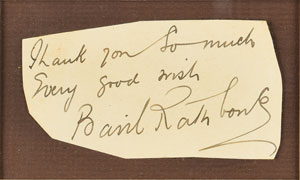 Thank you so much
Every good wish
Basil Rathbone